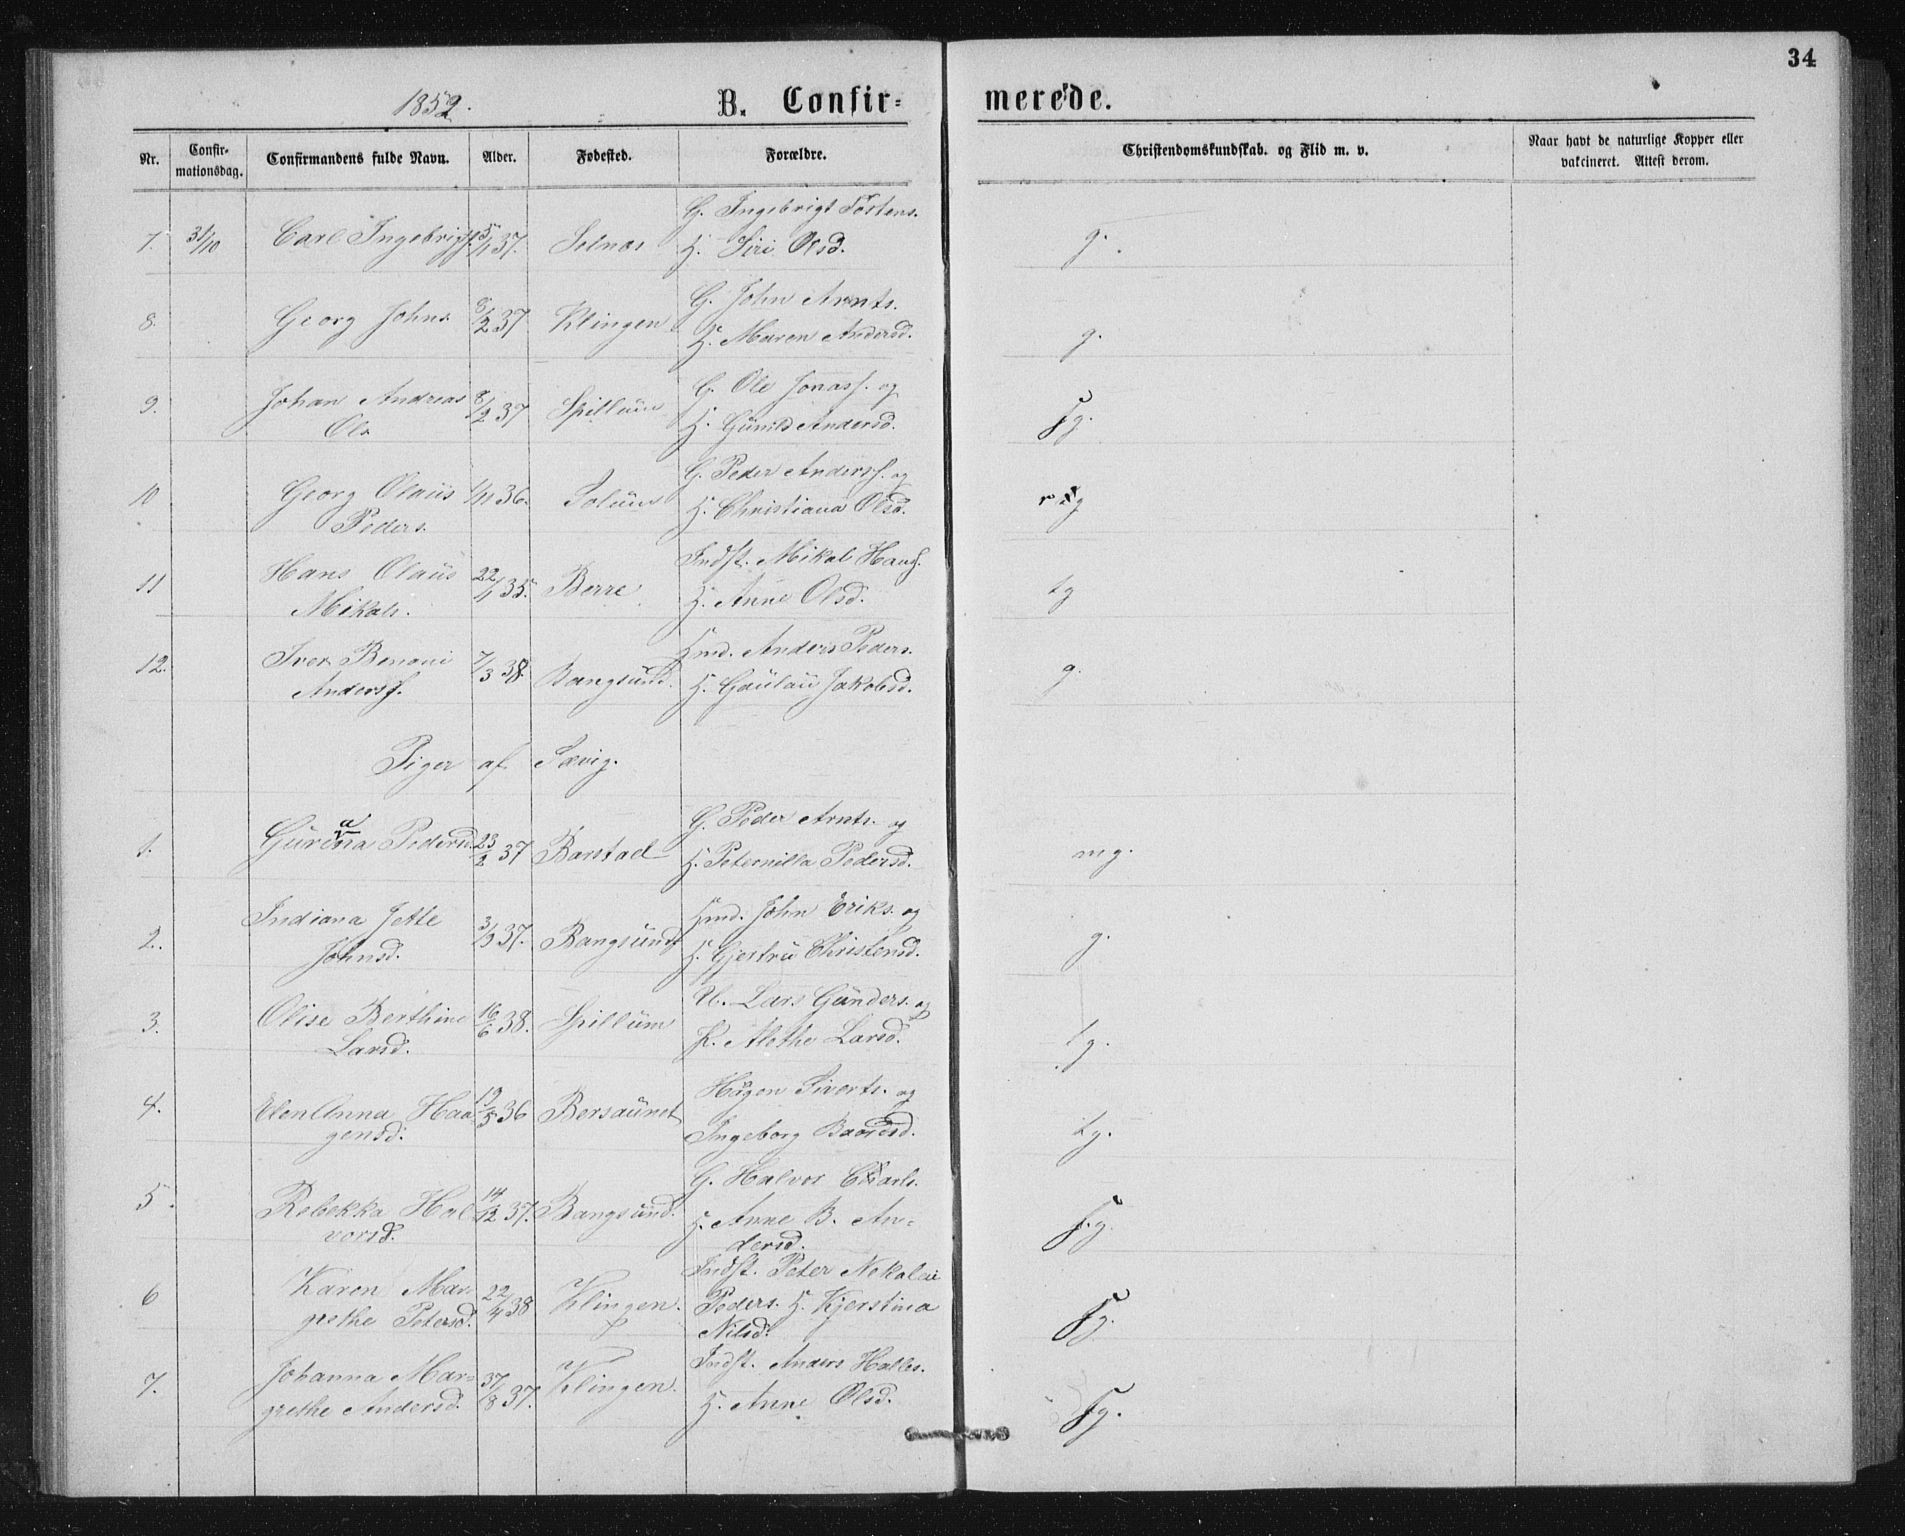 34
1852.
B. Confir-
merede.
Nr.
Confir-
mationsdag.
Confirmandens fulde Navn.
Alder.
Fødested.
Forældre.
Christendomskundskab. og Flid m. v.
Naar havt de naturlige Kopper eller
vakcineret. Attest derom.
7. 31/10 Carl Ingebrigts. 5/1 37. Selnæs
G. Ingebrigt Tostens.
K. Siri Olsd.
g.
8. Georg Johns. 8/2 37 Klingen
G. John Arnts.
K. Maren Andersd.
g.
9. Johan Andreas
Ols. 8/2 37 Spillum
G. Ole Jonass. og
K. Gunild Andersd.
g.
10 Georg Olaus
Peders. 1/11 36. Solum
G. Peder Anderss. og
K. Christiana Olsd.
g
11 Hans Olaus
Mikals. 22/1 35. Berre
Indst. Mikal Hans.
K. Anne Olsd.
tg
12. Iver Benoni
Anderss. 7/3 38. Bangsund.
Hmd. Anders Peders.
K. Gaulau Jakobsd.
g.
Piger af Sævig.
1. Gurena Pedersd. 23/2 37 Barstad
G. Peder Arnts. og
K. Peternilla Pedersd.
mg.
2. Indiana Jette
Johnsd. 3/3 37. Bangsund
Hmd. John Eriks. og
K. Gjertru Christensd.
g.
3. Olise Berthine
Larsd. 16/6 38. Spillum
U. Lars Gunders. og
P. Alethe Larsd.
tg.
4. Elen Anna Haa
gensd. 19/5 36 Bersaunet
Hagen Siverts. og
Ingeborg Baardsd.
tg.
5. Rebekka Hal
vorsd. 14/12 37. Bangsund.
G. Halvor Charls.
K. Anne B. An-
dersd.
g.
6 Karen Mar-
grethe Petersd. 22/4 38 Klingen.
Indst. Peter Nekolai
Peders. K. Kjerstina
Nilsd.
g.
7. Johanna Mar-
grethe Andersd. 37/8 37. Klingen.
Indst. Anders Halles.
K. Anne Olsd.
g.